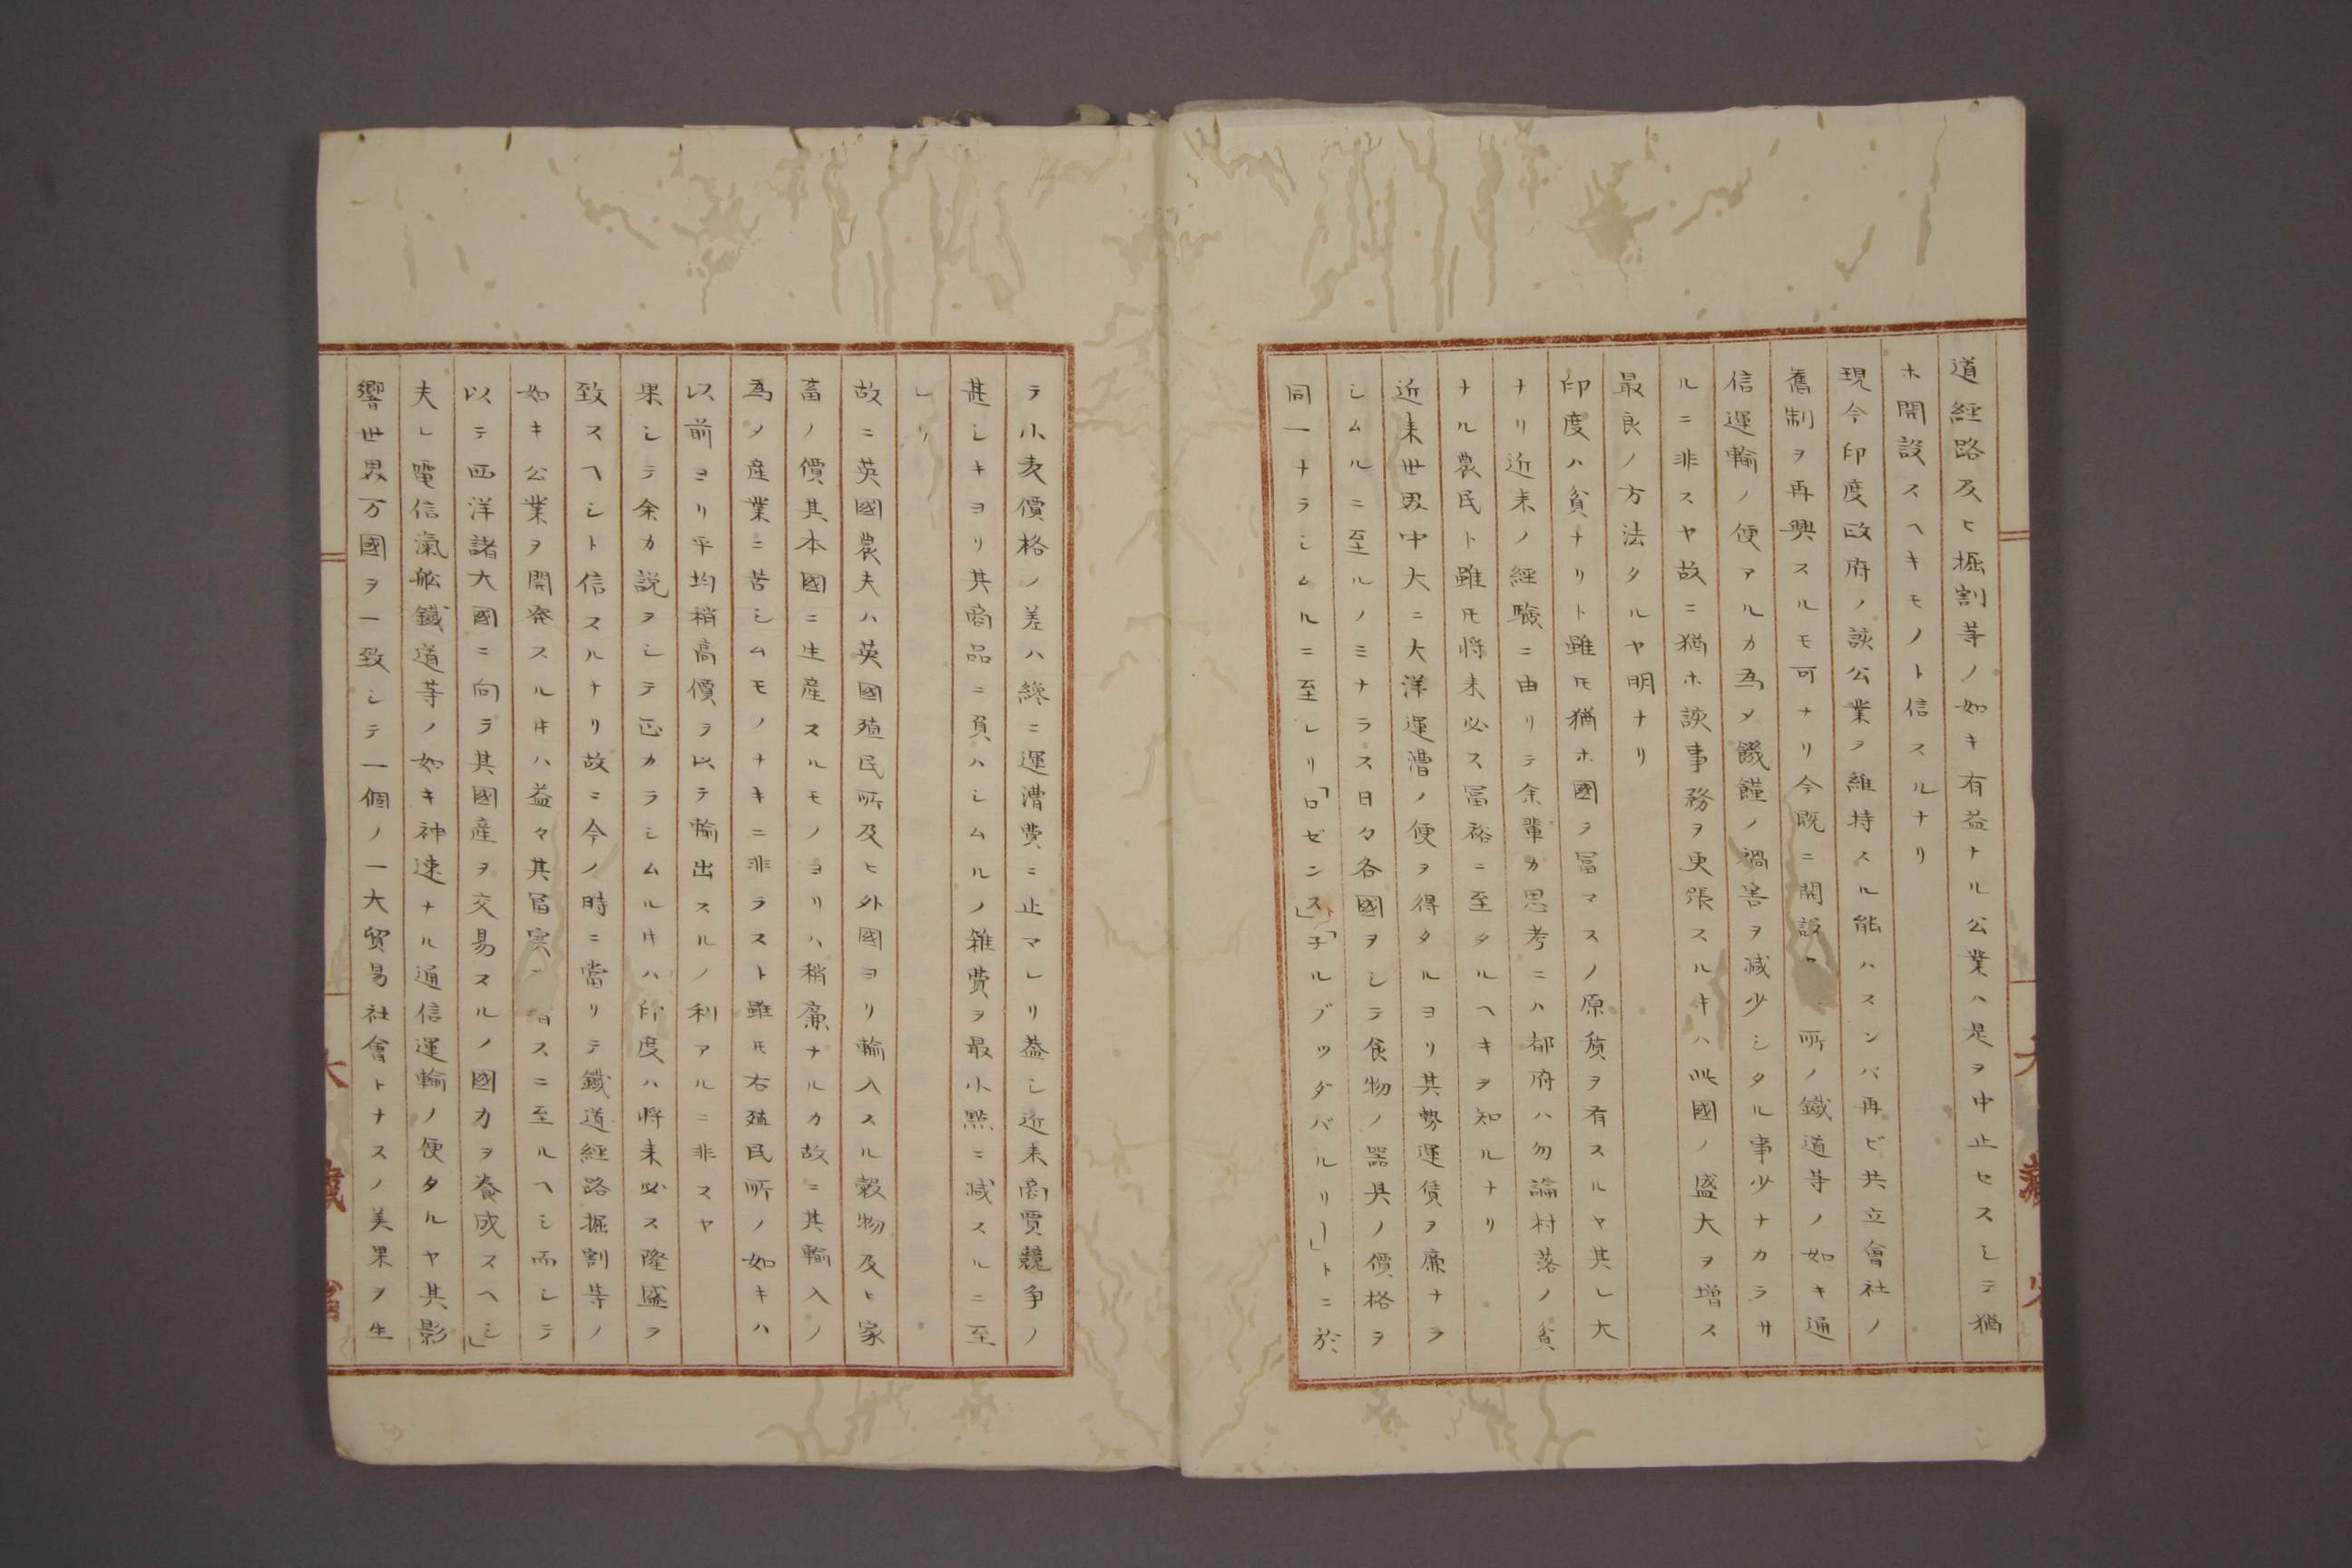 道經路及ヒ掘割等ノ如キ有益ナル公業ハ是ヲ中止セスシテ猶
ホ開設スヘキモノト信スルナリ
現今印度政府ノ該公業ヲ維持スル能ハスンバ再ビ共立會社ノ
舊制ヲ再興スルモ可ナリ今既ニ開設 所ノ鐵道等ノ如キ通
信運輸ノ便アルカ為メ饑饉ノ禍害ヲ減少シタル事少ナカラサ
ルニ非スヤ故ニ猶ホ該事務ヲ更張スルキハ此國ノ盛大ヲ增ス
最良ノ方法タルヤ明ナリ
印度ハ貧ナリト雖モ猶ホ國ヲ冨マスノ原質ヲ有スルヤ其レ大
ナリ近来ノ經驗ニ由リテ余輩カ思考ニハ都府ハ勿論村落ノ貧
ナル農民ト雖モ将来必ス冨裕ニ至タルヘキヲ知ルナリ
近来世界中大ニ大洋運漕ノ便ヲ得タルヨリ其勢運賃ヲ廉ナラ
シムルニ至ルノミナラス日々各國ヲシテ食物ノ器具ノ價格ヲ
同一ナラシムルニ至レリ「ロゼンス」ト「子ルブッダバルリー」トニ於
テ小麦價格ノ差ハ纔ニ運漕費ニ止マレリ蓋シ近来商賈競争ノ
甚シキヨリ其商品ニ負ハシムルノ雑費ヲ最小點ニ減スルニ至
レリ
故ニ英國農夫ハ英國殖民所及ヒ外國ヨリ輸入スル穀物及ヒ家
畜ノ價其本國ニ生産スルモノヨリハ稍廉ナルカ故ニ其輸入ノ
為ノ産業ニ苦シムモノナキニ非ラスト雖モ右殖民所ノ如キハ
以前ヨリ平均稍高價ヲ以テ輸出スルノ利アルニ非スヤ
果シテ余カ説ヲシテ正カラシムルキハ印度ハ将来必ス隆盛ヲ
致スヘシト信スルナリ故ニ今ノ時ニ當リテ鐵道經路掘割等ノ
如キ公業ヲ開発スルキハ益々其冨実 スニ至ルヘシ而シテ
以テ西洋諸大國ニ向ラ其國産ヲ交易スルノ國力ヲ養成スヘシ」
夫レ電信滊舩鐵道等ノ如キ神速ナル通信運輸ノ便タルヤ其影
響世界万國ヲ一致シテ一個ノ一大貿易社會トナスノ美果ヲ生